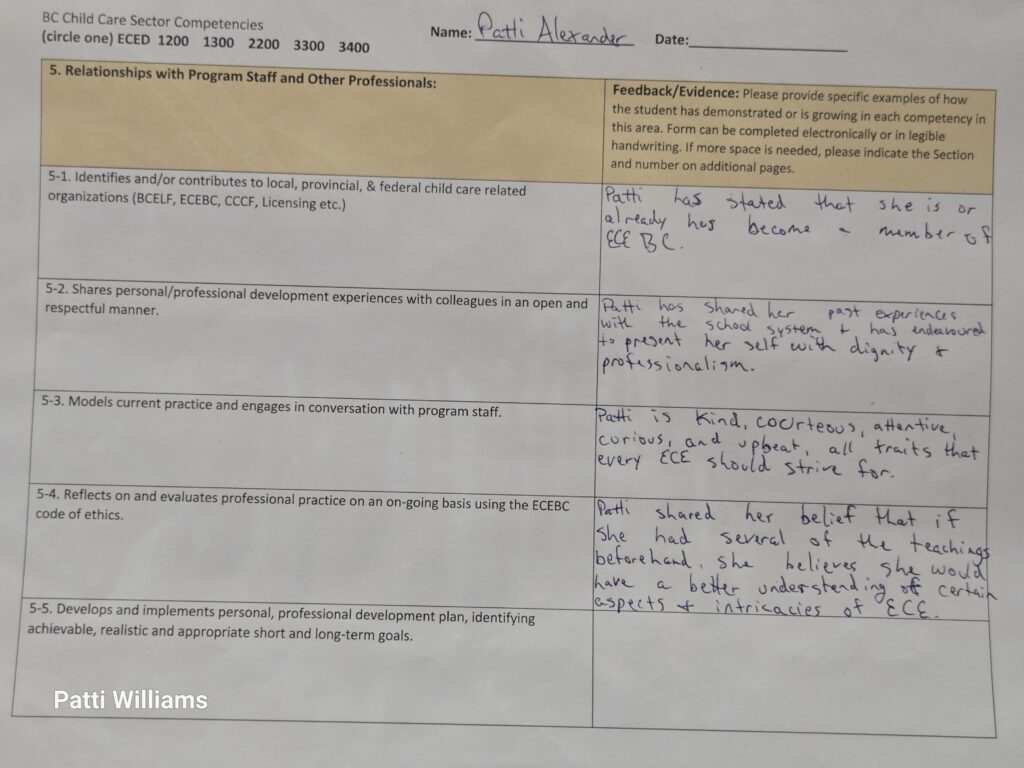 BC Child Care Sector Competencies
(circle one) ECED 1200 1300 2200 3300 3400
Name: Patti Alexander Date:
5. Relationships with Program Staff and Other Professionals:
Feedback/Evidence: Please provide specific examples of how
the student has demonstrated or is growing in each competency in
this area. Form can be completed electronically or in legible
handwriting. If more space is needed, please indicate the Section
and number on additional pages.
5-1. Identifies and/or contributes to local, provincial, & federal child care related
organizations (BCELF, ECEBC, CCCF, Licensing etc.)
Patti has stated that she is or
already has become a member of
ECE BC.
5-2. Shares personal/professional development experiences with colleagues in an open and
respectful manner.
Patti has shared her past experiences
with the school system + has endeavoured
to present her self with dignity &
professionalism.
5-3. Models current practice and engages in conversation with program staff.
Patti is kind, courteous, attentive,
curious, and upbeat, all traits that
every ECE should strive for.
5-4. Reflects on and evaluates professional practice on an on-going basis using the ECEBC
code of ethics.
Patti shared her belief that if
she had several of the teachings
beforehand, she believes she would
have a better understanding of certain
aspects + intricacies of ECE.
5-5. Develops and implements personal, professional development plan, identifying
achievable, realistic and appropriate short and long-term goals.
Patti Williams